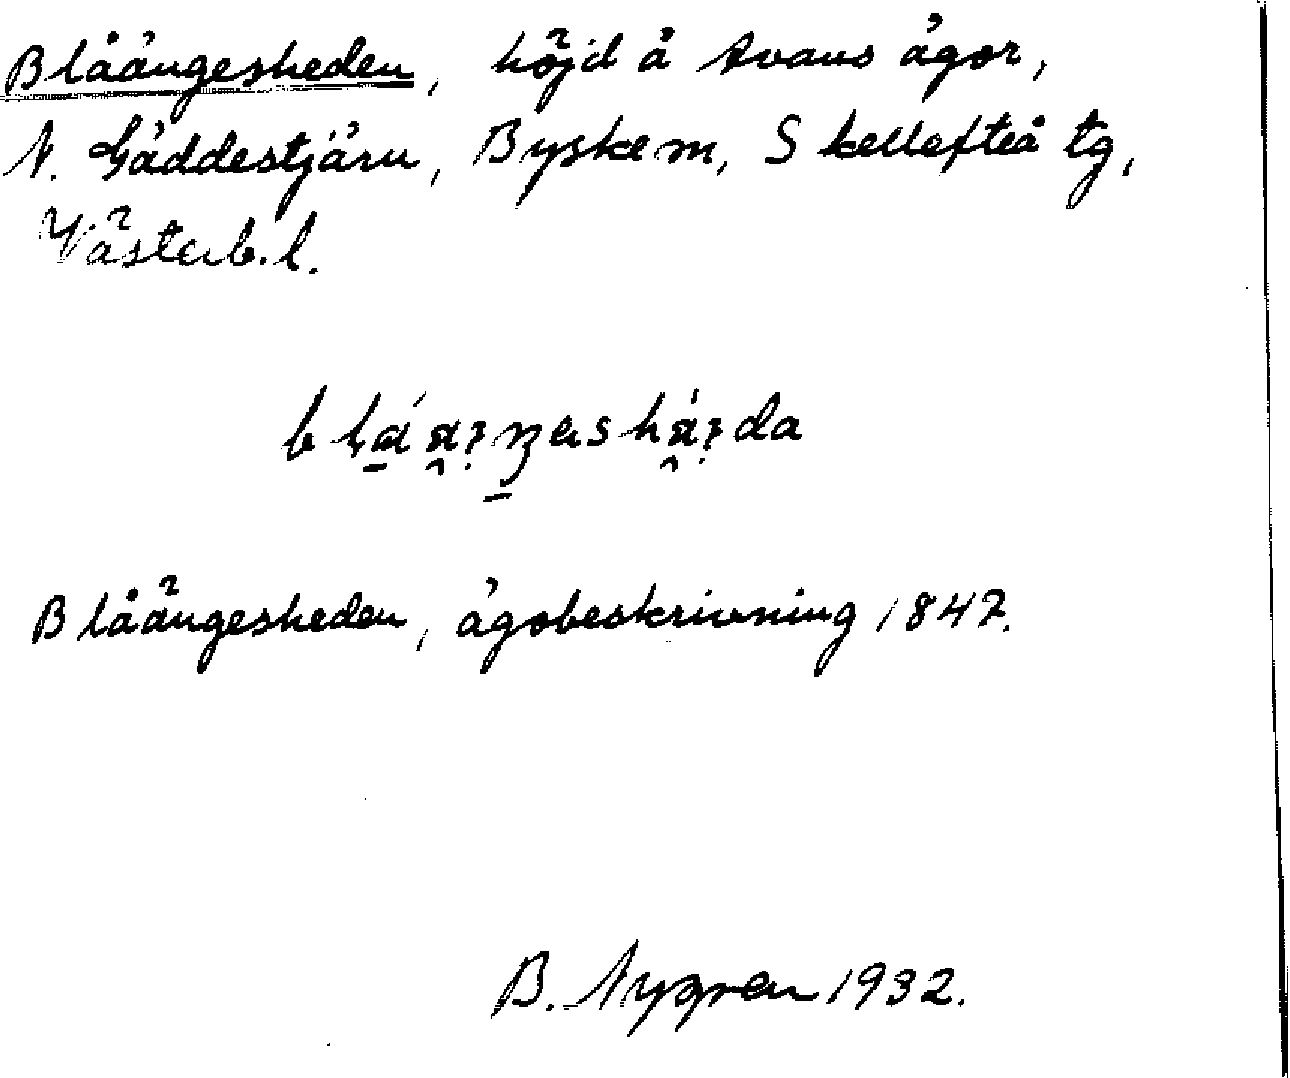 Blåängesheden, höjd å Avans ägor,
N. Gäddestjärn, Byske m, Skellefteå tg,
Västerb. l.
Blåängesheden, ägobeskrivning 1847.
B. Nygren 1932.